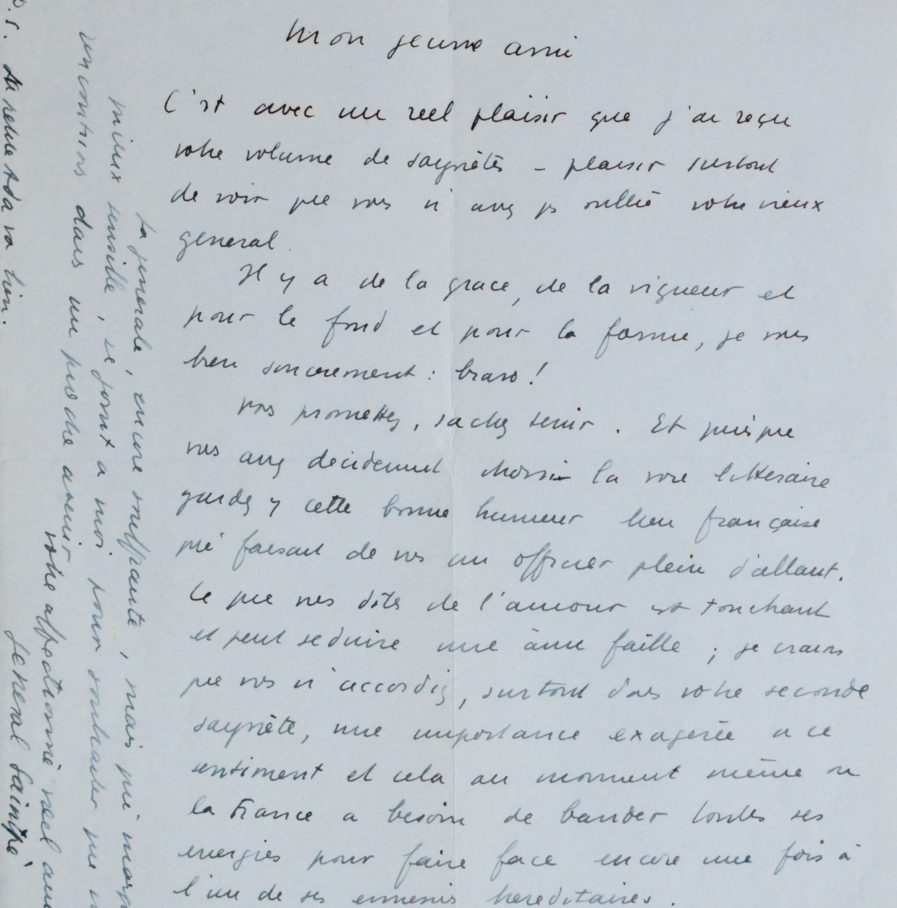 Mon jeune ami
C'est avec un reel plaisir que j'ai reçu
votre volume de saynètes – plaisir surtout
de voir que vous n'avez ps oublié votre vieux
general.
Il y a de la grace, de la vigueur et
pour le fond et pour la forme, je vous
bien sincerement : bravo !
Vous promettez, sachez tenir. Et puisque
vous avez decidement choisi la voie litteraire
gardez y cette bonne humeur bien française
qui faisait de vous un officier plein d'allant.
Ce que vous dites de l'amour est touchant
et peut seduire une âme faible ; je crains
que vous n'accordiez, surtout dans votre seconde
saynète, une importance exagérée a ce
sentiment et cela au moment même ou
la France a besoin de bander toutes ses
energies pour faire face encore une fois à
l'un de ses ennemis hereditaires.
La generale, encore souffrante, mais qui
mieux sensible, se joint a moi pour souhaiter que
rencontrions dans un proche avenir
votre affectionné vieil ami
General
P.S. va bien.